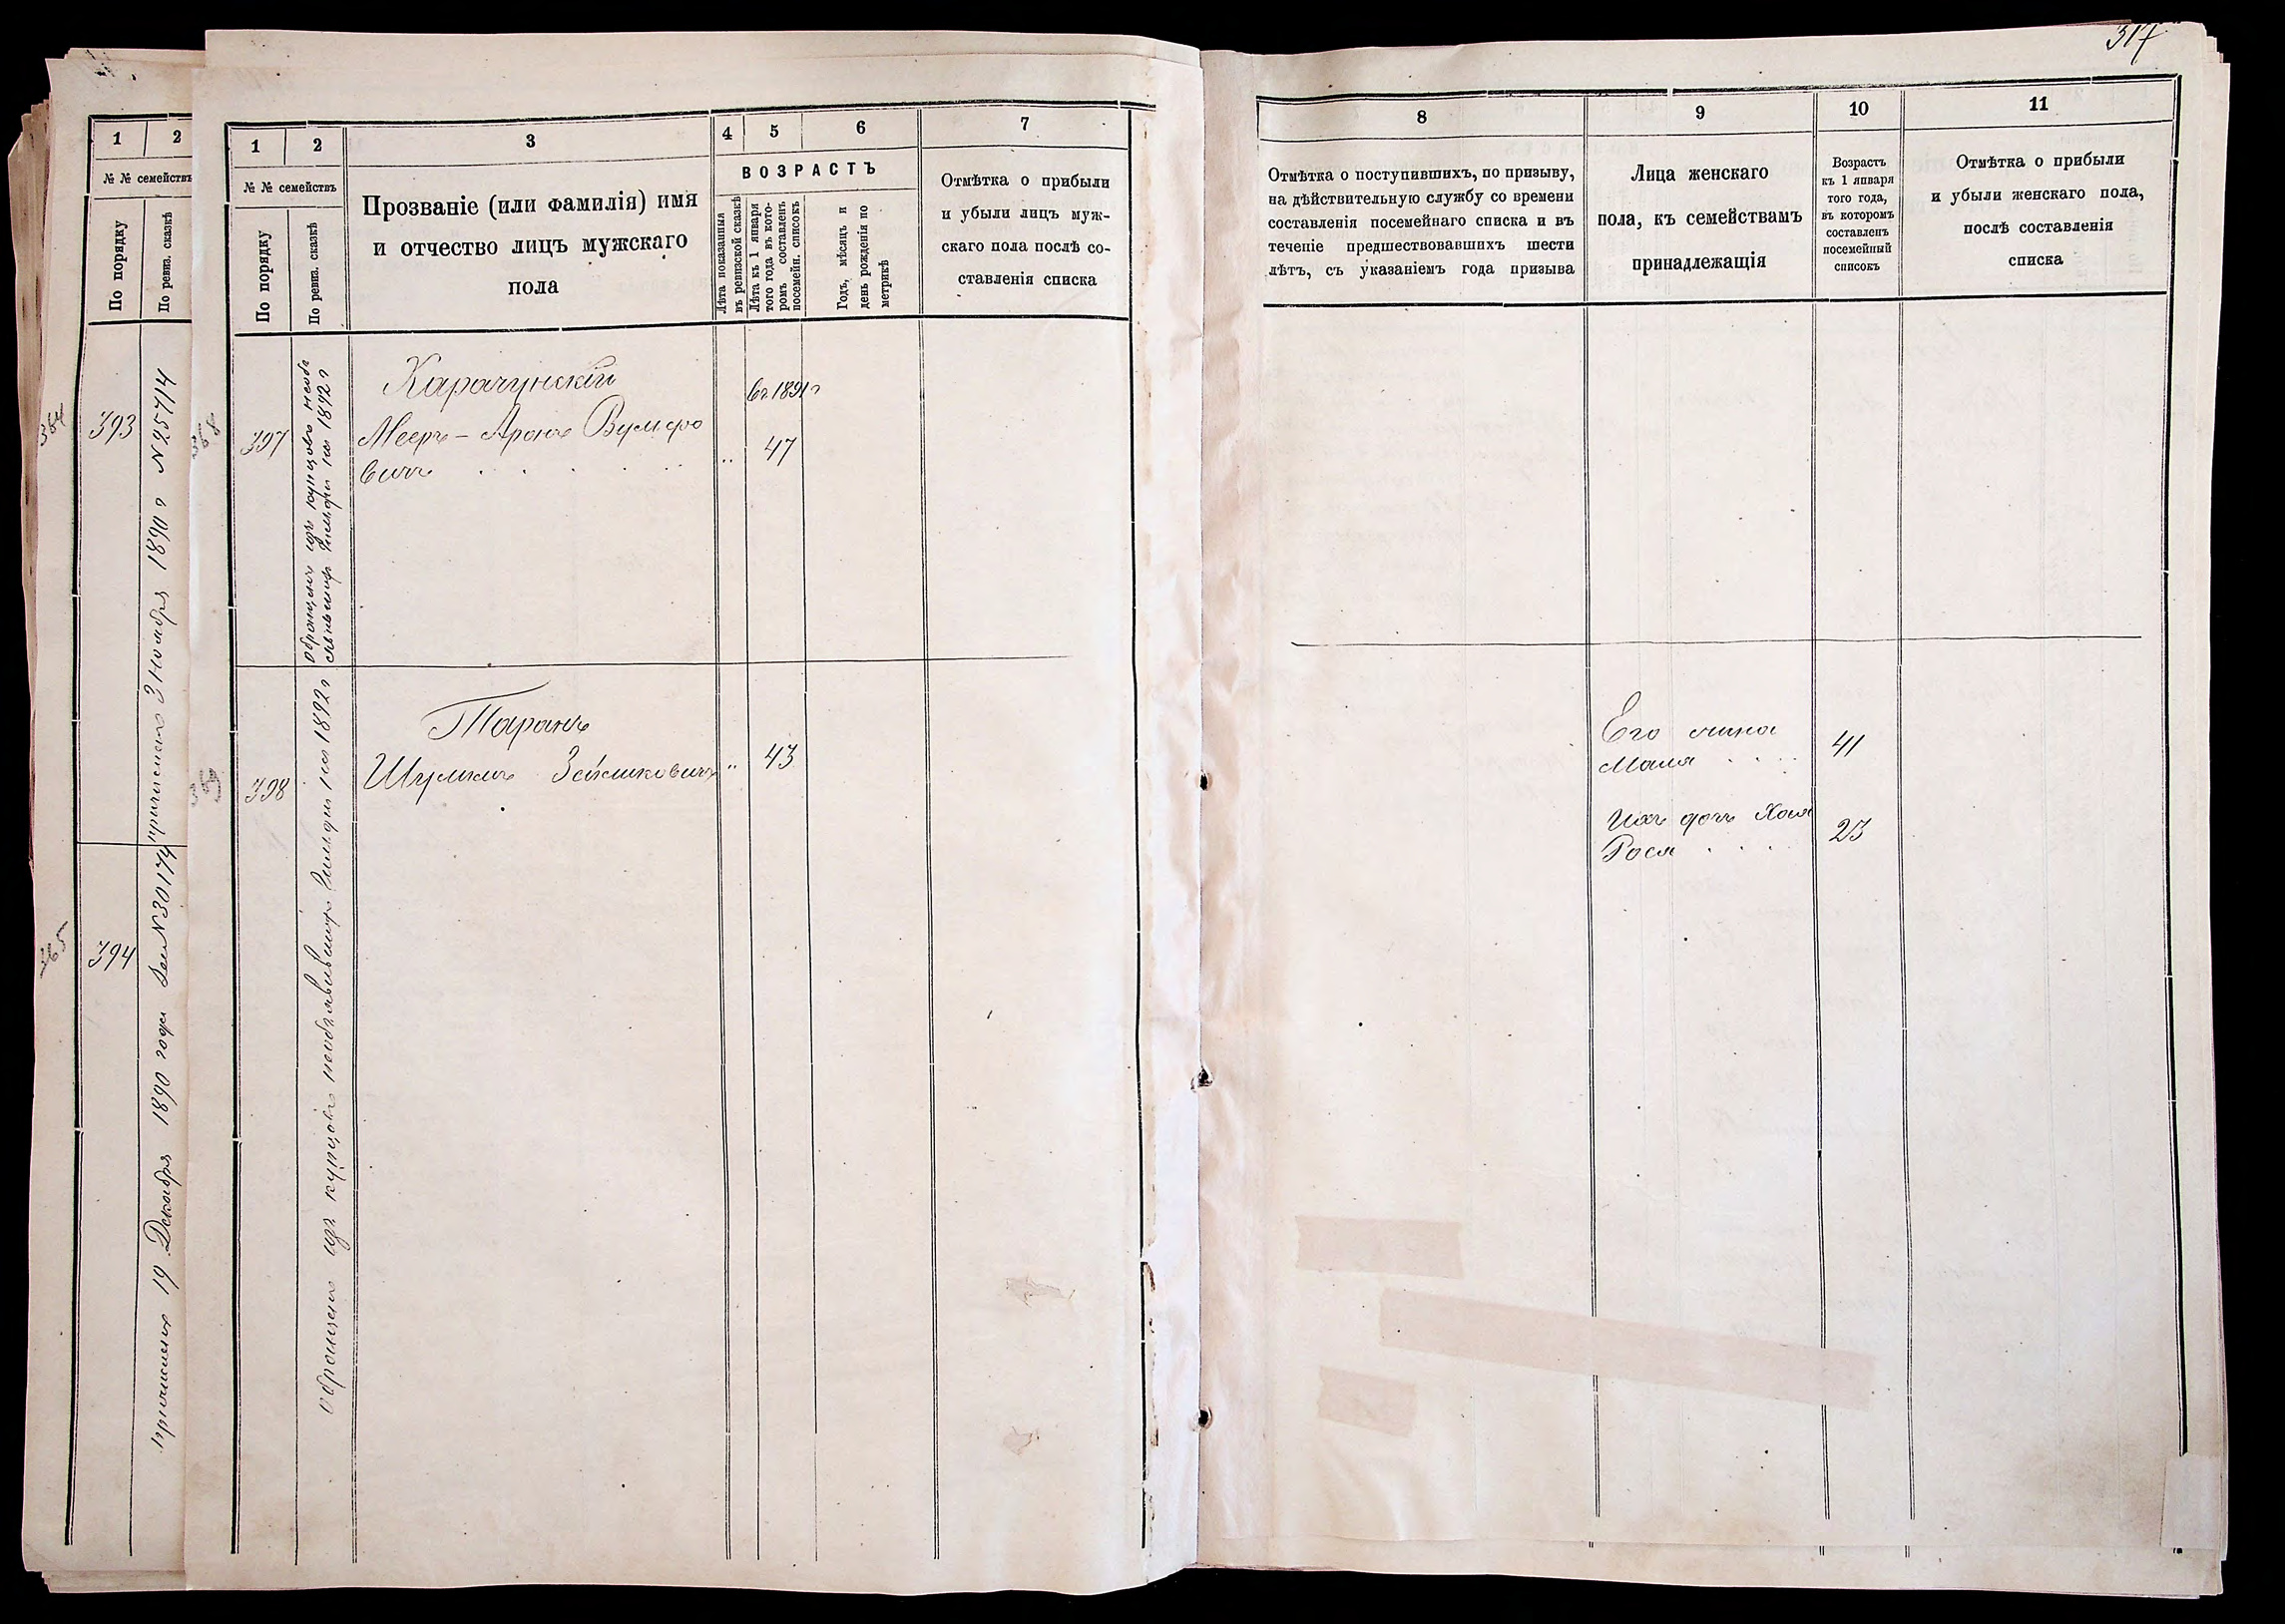 317
1 2
№ № семействъ
По порядку
По ревиз. сказкѣ
364
393
причисленъ 3 Ноября 1890 г № 25714
365
394
причисленъ 19 Декабря 1890 года за № 30174
1 2 3 4 5 6 7
№ № семействъ
По порядку
По ревиз. сказкѣ
Прозваніе (или фамилія) имя
и отчество лицъ мужскаго
пола
ВОЗРАСТЪ
Лѣта показанныя
въ ревизской сказкѣ
Лѣта къ 1 января
того года въ кото-
ромъ составленъ
посемейн. списокъ
Годъ, мѣсяцъ и
день рожденія по
метрикѣ
Отмѣтка о прибыли
и убыли лицъ муж-
скаго пола послѣ со-
ставленія списка
8 9 10 11
Отмѣтка о поступившихъ, по призыву,
на дѣйствительную службу со времени
составленія посемейнаго списка и въ
теченіе предшествовавшихъ шести
лѣтъ, съ указаніемъ года призыва
Лица женскаго
пола, къ семействамъ
принадлежащія
Возрастъ
къ 1 января
того года,
въ которомъ
составленъ
посемейный
списокъ
Отмѣтка о прибыли
и убыли женскаго пола,
послѣ составленія
списка
368
397
обращенъ изъ купцовъ необъ
явившихъ гильдіи на 1892 г
Карачунскій
въ 1891 г
Мееръ - Аронъ Вульфо
вичъ . . . . . 47
369
398
обращенъ изъ купцовъ необъявившихъ гильдіи на 1892 г
Таранъ
Шулимъ Зейликовичъ 43
Его жена
Маля . . . . 41
Ихъ дочь Хая
Рося . . . . 23